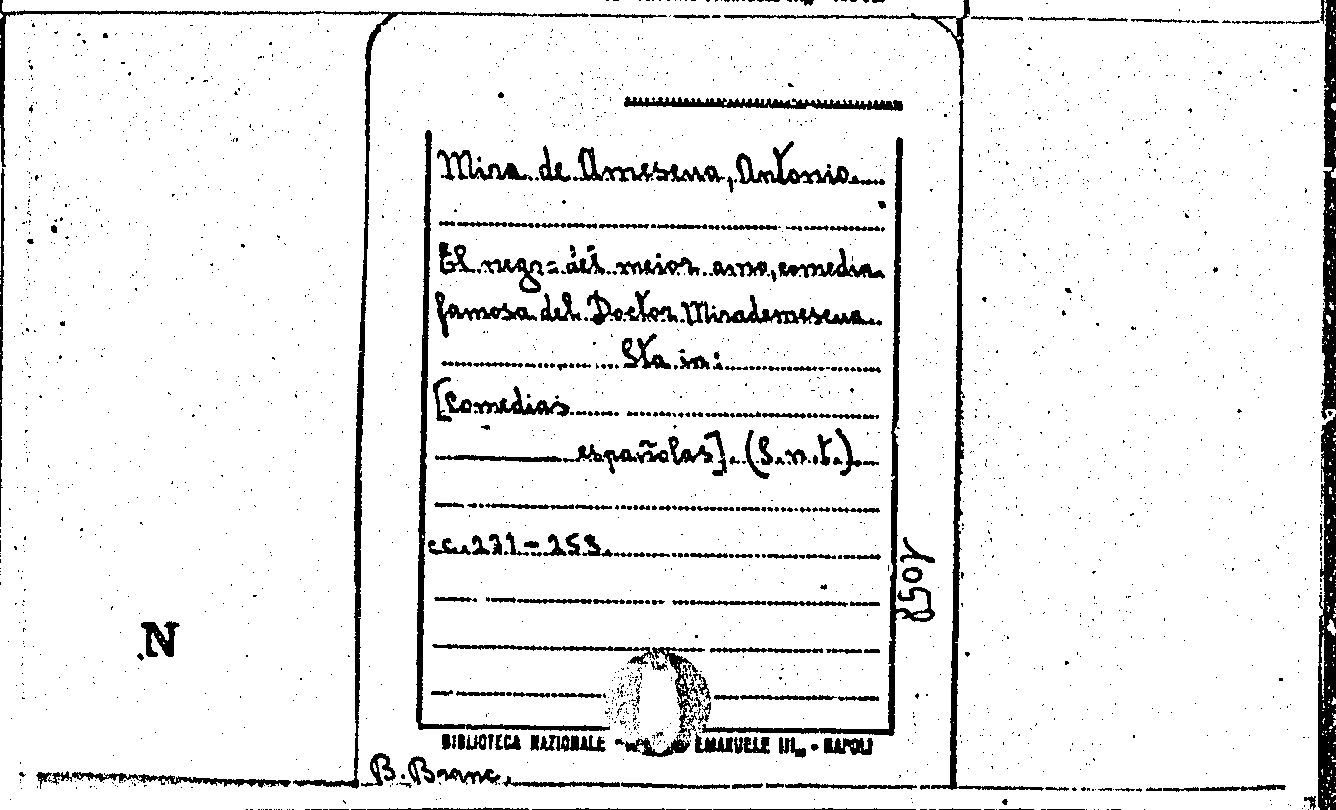 Mira de Amescua, Antonio.
El negro del meior amo, comedia
famosa del Doctor Mirademescua.
Sta in:
[Comedias
españolas]. (S.n.t.)
cc. 231-253.
8508
N
BIBLIOTECA NAZIONALE EMANUELE III - NAPOLI
B. Branc.